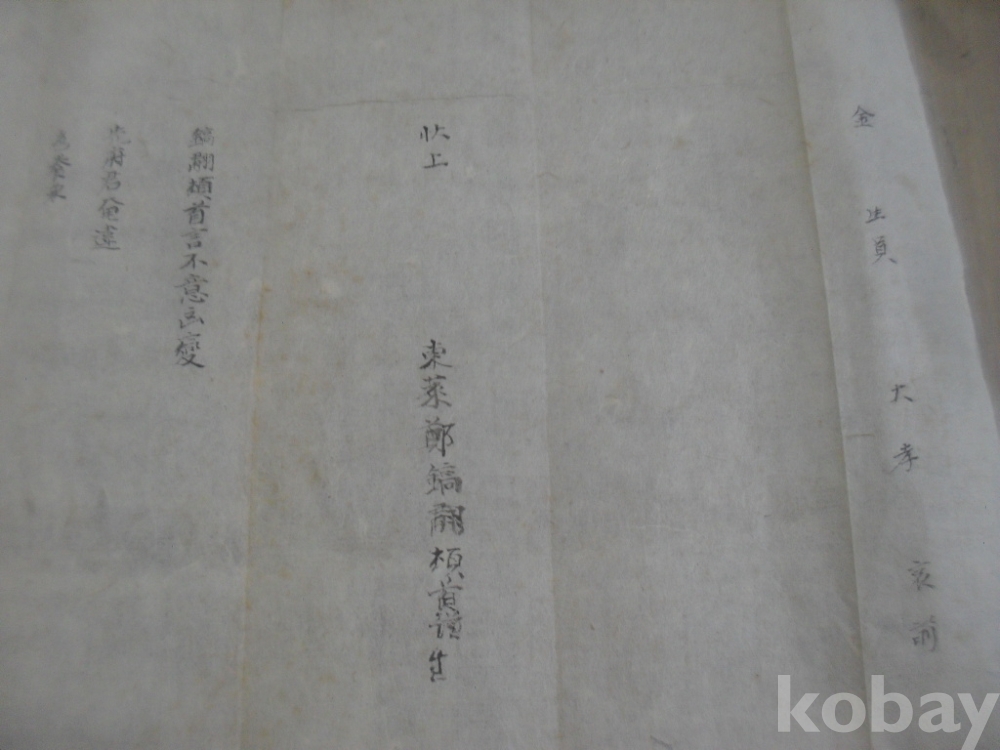 金 生員 大孝 哀前
狀上
東萊鄭鎬翻頓首謹
鎬翻頓首言不意凶變
先府君奄違
色養
kobay